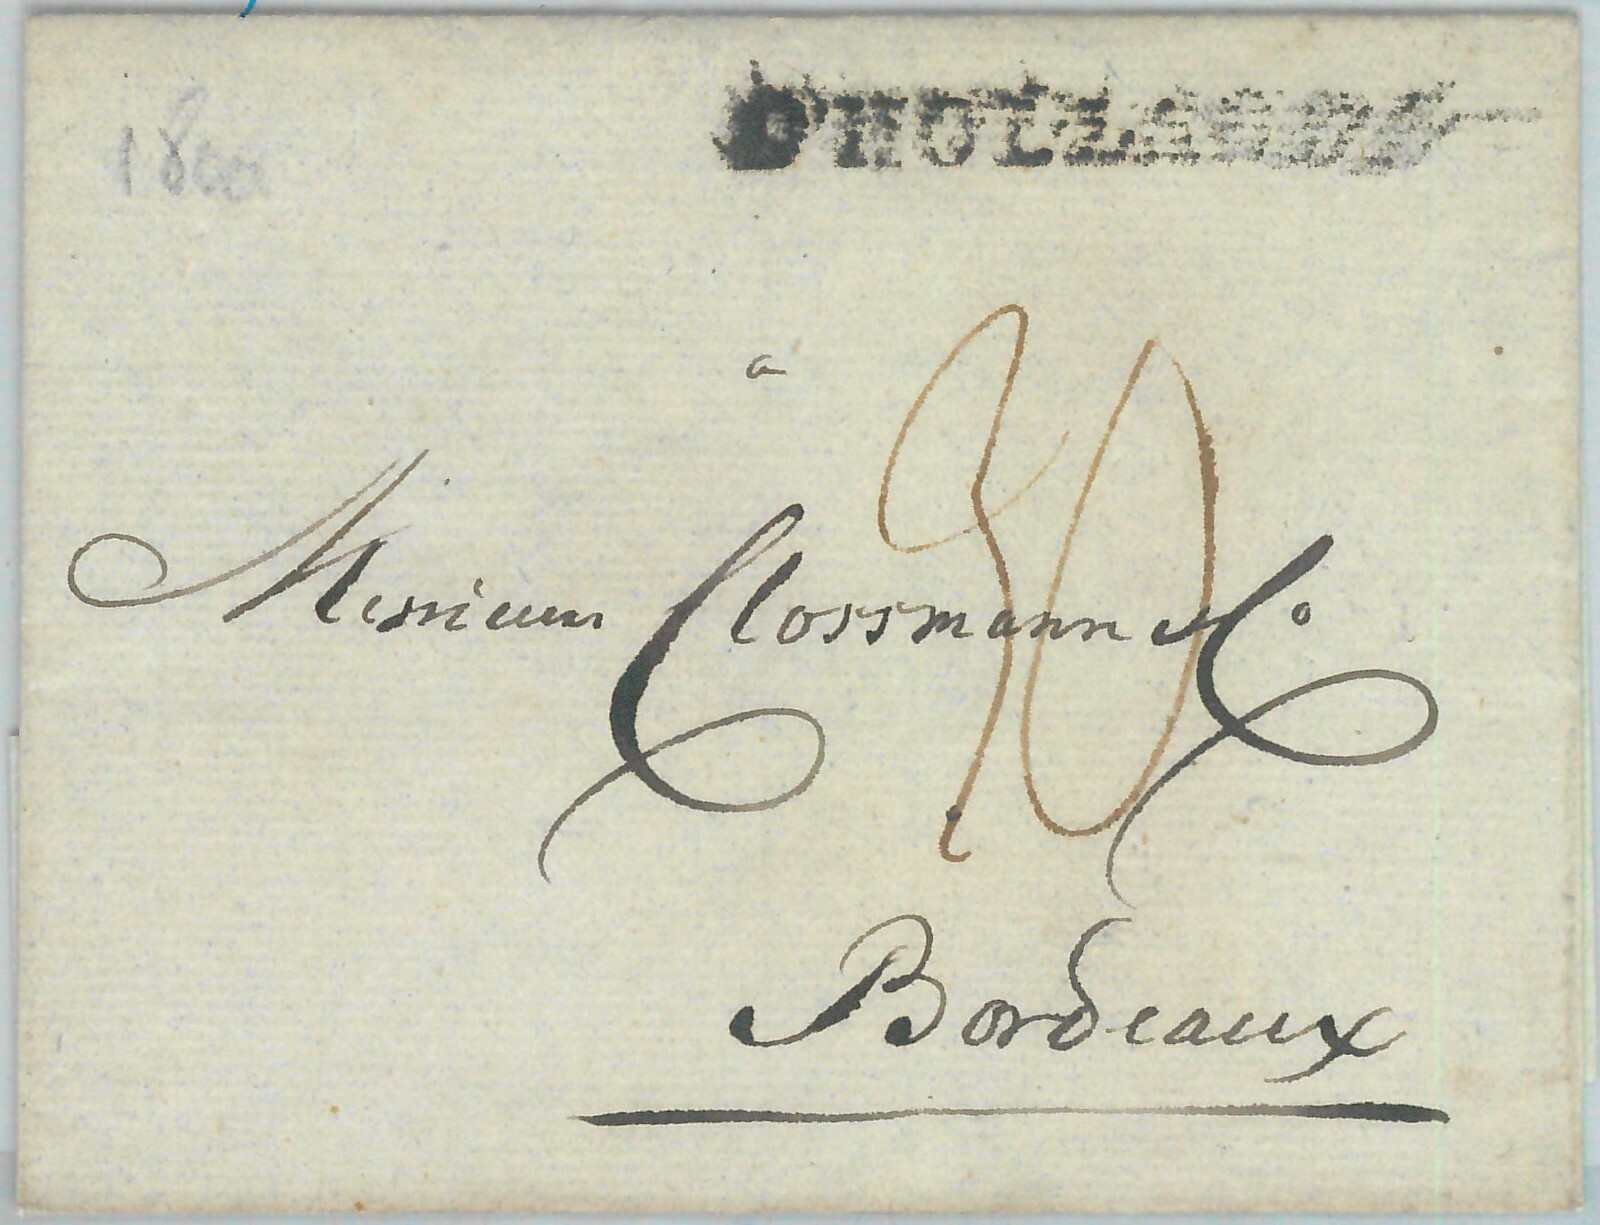 D'HOLLANDE
1800
a
Messieurs Clossmann & Co
30
Bordeaux